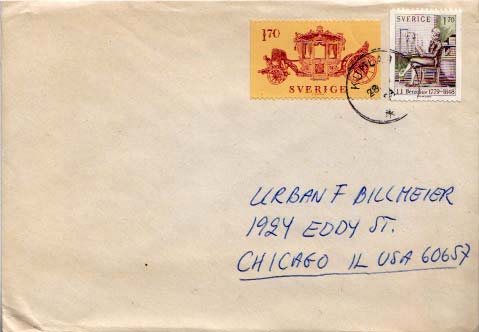 1.70
SVERIGE
SVERIGE 1.70
J.J. Berzelius 1779-1848
28.
URBAN F BILLMEIER
1924 EDDY ST.
CHICAGO IL USA 60657